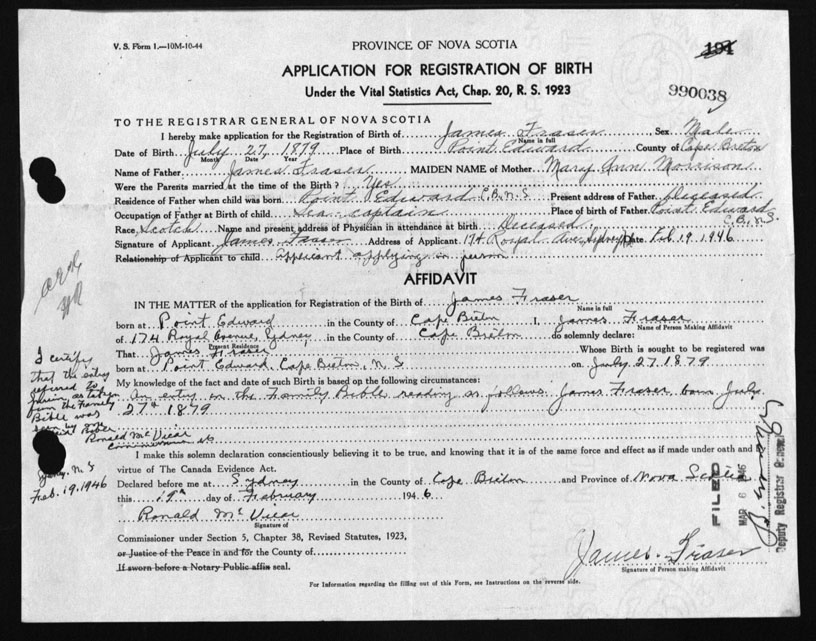 V. S. Form 1.—10M-10-44
PROVINCE OF NOVA SCOTIA
191
APPLICATION FOR REGISTRATION OF BIRTH
Under the Vital Statistics Act, Chap. 20, R. S. 1923
990038
TO THE REGISTRAR GENERAL OF NOVA SCOTIA
I hereby make application for the Registration of Birth of James Fraser Sex Male
Name in full
Date of Birth July 27, 1879 Place of Birth Point Edward County of Cape Breton
Month Date Year
Name of Father James Fraser MAIDEN NAME of Mother Mary Ann Morrison
Were the Parents married at the time of the Birth? Yes
Residence of Father when child was born Point Edward C.B., N.S. Present address of Father Deceased
Occupation of Father at Birth of child Sea captain Place of birth of Father Point Edward
C.B., N.S
Race Scotch Name and present address of Physician in attendance at birth Deceased
Signature of Applicant James Fraser Address of Applicant 174 Royal Ave, Sydney Date Feb 19 1946
Relationship of Applicant to child applicant applying in person
AFFIDAVIT
IN THE MATTER of the application for Registration of the Birth of James Fraser
Name in full
born at Point Edward in the County of Cape Breton I, James Fraser
Name of Person Making Affidavit
of 174 Royal Avenue, Sydney in the County of Cape Breton do solemnly declare:
Present Residence
That James Fraser Whose Birth is sought to be registered was
born at Point Edward, Cape Breton, N.S on July 27, 1879
My knowledge of the fact and date of such Birth is based on the following circumstances:
An entry in the Family Bible reading as follows James Fraser born July
27th 1879
I certify
that the entry
referred to
herein as taken
from the Family
Bible was
seen by me
Ronald McVicar
Commissioner etc
Sydney, N.S
Feb. 19, 1946
I make this solemn declaration conscientiously believing it to be true, and knowing that it is of the same force and effect as if made under oath and by
virtue of The Canada Evidence Act.
Declared before me at Sydney in the County of Cape Breton and Province of Nova Scotia
this 19th day of February 1946
Ronald McVicar
Signature of
Commissioner under Section 5, Chapter 38, Revised Statutes, 1923,
or Justice of the Peace in and for the County of
If sworn before a Notary Public affix seal.
FILED
MAR 6 1946
Deputy Registrar General
James Fraser
Signature of Person making Affidavit
For Information regarding the filling out of this Form, see Instructions on the reverse side.